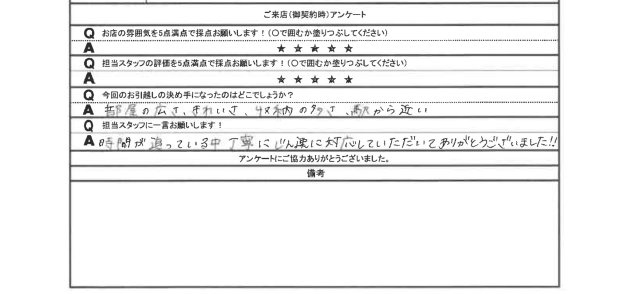 ご来店（御契約時）アンケート
Q お店の雰囲気を5点満点で採点お願いします！（○で囲むか塗りつぶしてください）
A ★ ★ ★ ★ ★
Q 担当スタッフの評価を5点満点で採点お願いします！（○で囲むか塗りつぶしてください）
A ★ ★ ★ ★ ★
Q 今回のお引越しの決め手になったのはどこでしょうか？
A 部屋の広さ、きれいさ、収納の多さ、駅から近い
Q 担当スタッフに一言お願いします！
A 時間が迫っている中丁寧に迅速に対応していただいてありがとうございました!!
アンケートにご協力ありがとうございました。
備考